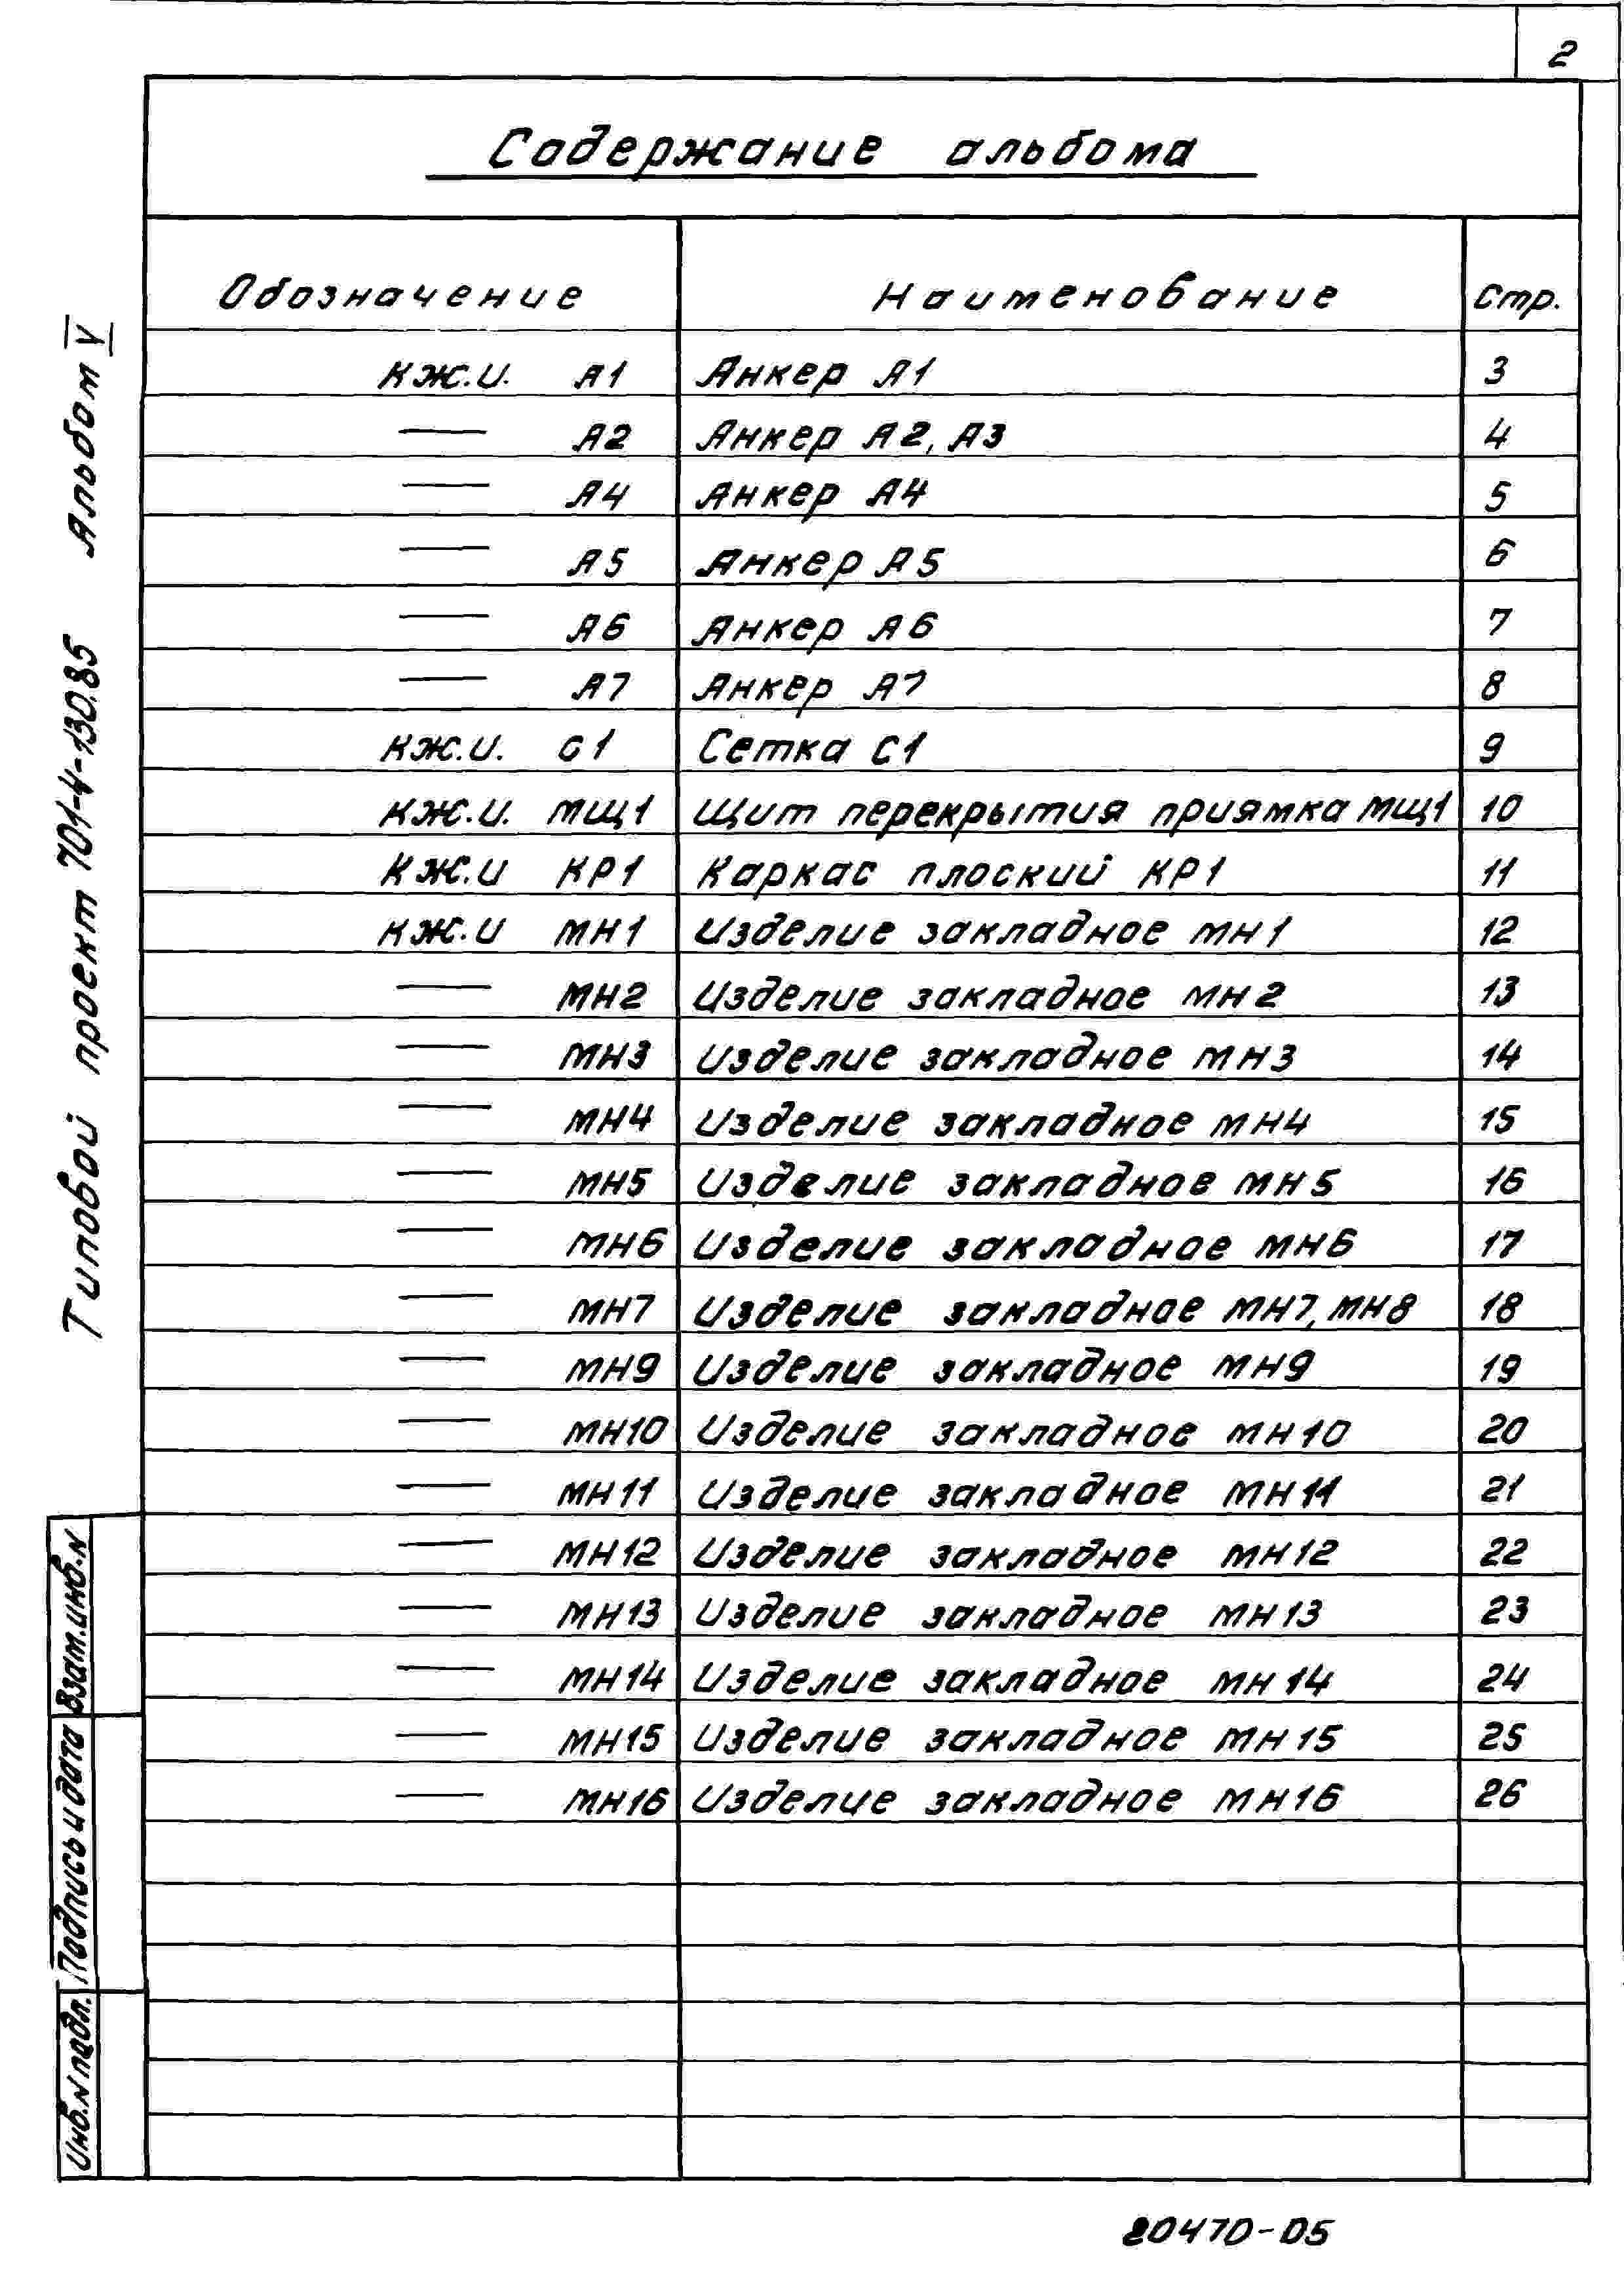 2
Содержание альбома
Обозначение Наименование Стр.
КЖ.И. А1 Анкер А1 3
— А2 Анкер А2, А3 4
— А4 Анкер А4 5
— А5 Анкер А5 6
— А6 Анкер А6 7
— А7 Анкер А7 8
КЖ.И. С1 Сетка С1 9
КЖ.И. МЩ1 Щит перекрытия приямка МЩ1 10
КЖ.И КР1 Каркас плоский КР1 11
КЖ.И МН1 Изделие закладное МН1 12
— МН2 Изделие закладное МН2 13
— МН3 Изделие закладное МН3 14
— МН4 Изделие закладное МН4 15
— МН5 Изделие закладное МН5 16
— МН6 Изделие закладное МН6 17
— МН7 Изделие закладное МН7, МН8 18
— МН9 Изделие закладное МН9 19
— МН10 Изделие закладное МН10 20
— МН11 Изделие закладное МН11 21
— МН12 Изделие закладное МН12 22
— МН13 Изделие закладное МН13 23
— МН14 Изделие закладное МН14 24
— МН15 Изделие закладное МН15 25
— МН16 Изделие закладное МН16 26
Типовой проект 701-4-130.85 Альбом V
Взам.инв.N
Подпись и дата
Инв.N подл.
20470-05